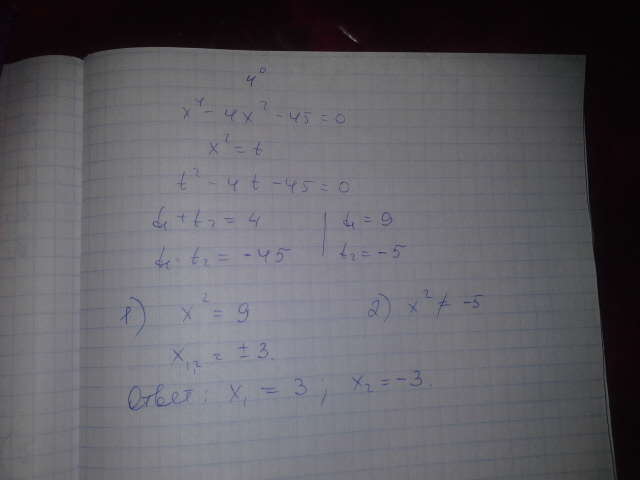 4°
x⁴ - 4x² - 45 = 0
x² = t
t² - 4t - 45 = 0
t₁ + t₂ = 4 | t₁ = 9
t₁ · t₂ = -45 | t₂ = -5
1) x² = 9 2) x² ≠ -5
x₁,₂ = ±3.
Ответ: x₁ = 3; x₂ = -3.